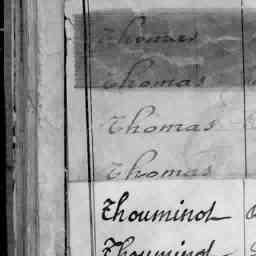 Thomas
Thomas
Thomas
Thomas
Thouminot
Thouminot